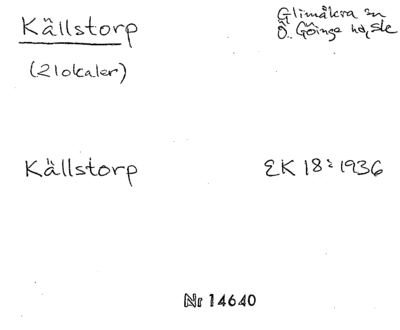 Källstorp
Glimåkra sn
Ö. Göinge hd, Sk
(2 lokaler)
Källstorp
EK 18: 1936
Nr 14640